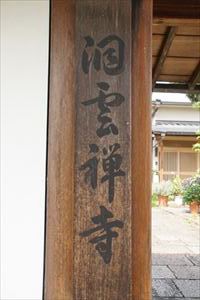 洞雲禅寺